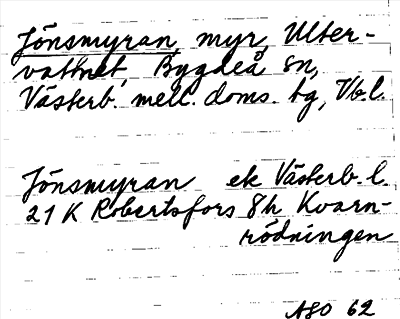 Jönsmyran, myr, Ulter-
vattnet, Bygdeå sn,
Västerb. mell. doms. tg, Vb.l.
Jönsmyran ek Västerb. l.
21 K Robertsfors 8h Kvarn-
rödningen
ASO 62